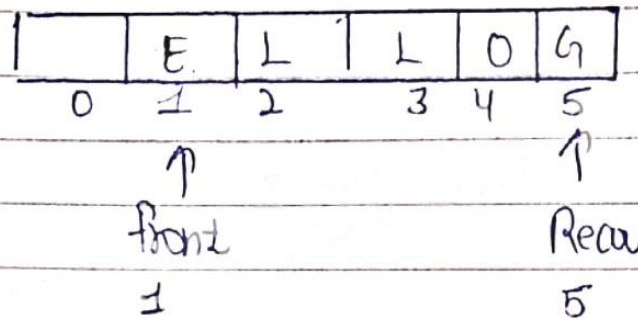 E L L O G
0 1 2 3 4 5
front
1 5